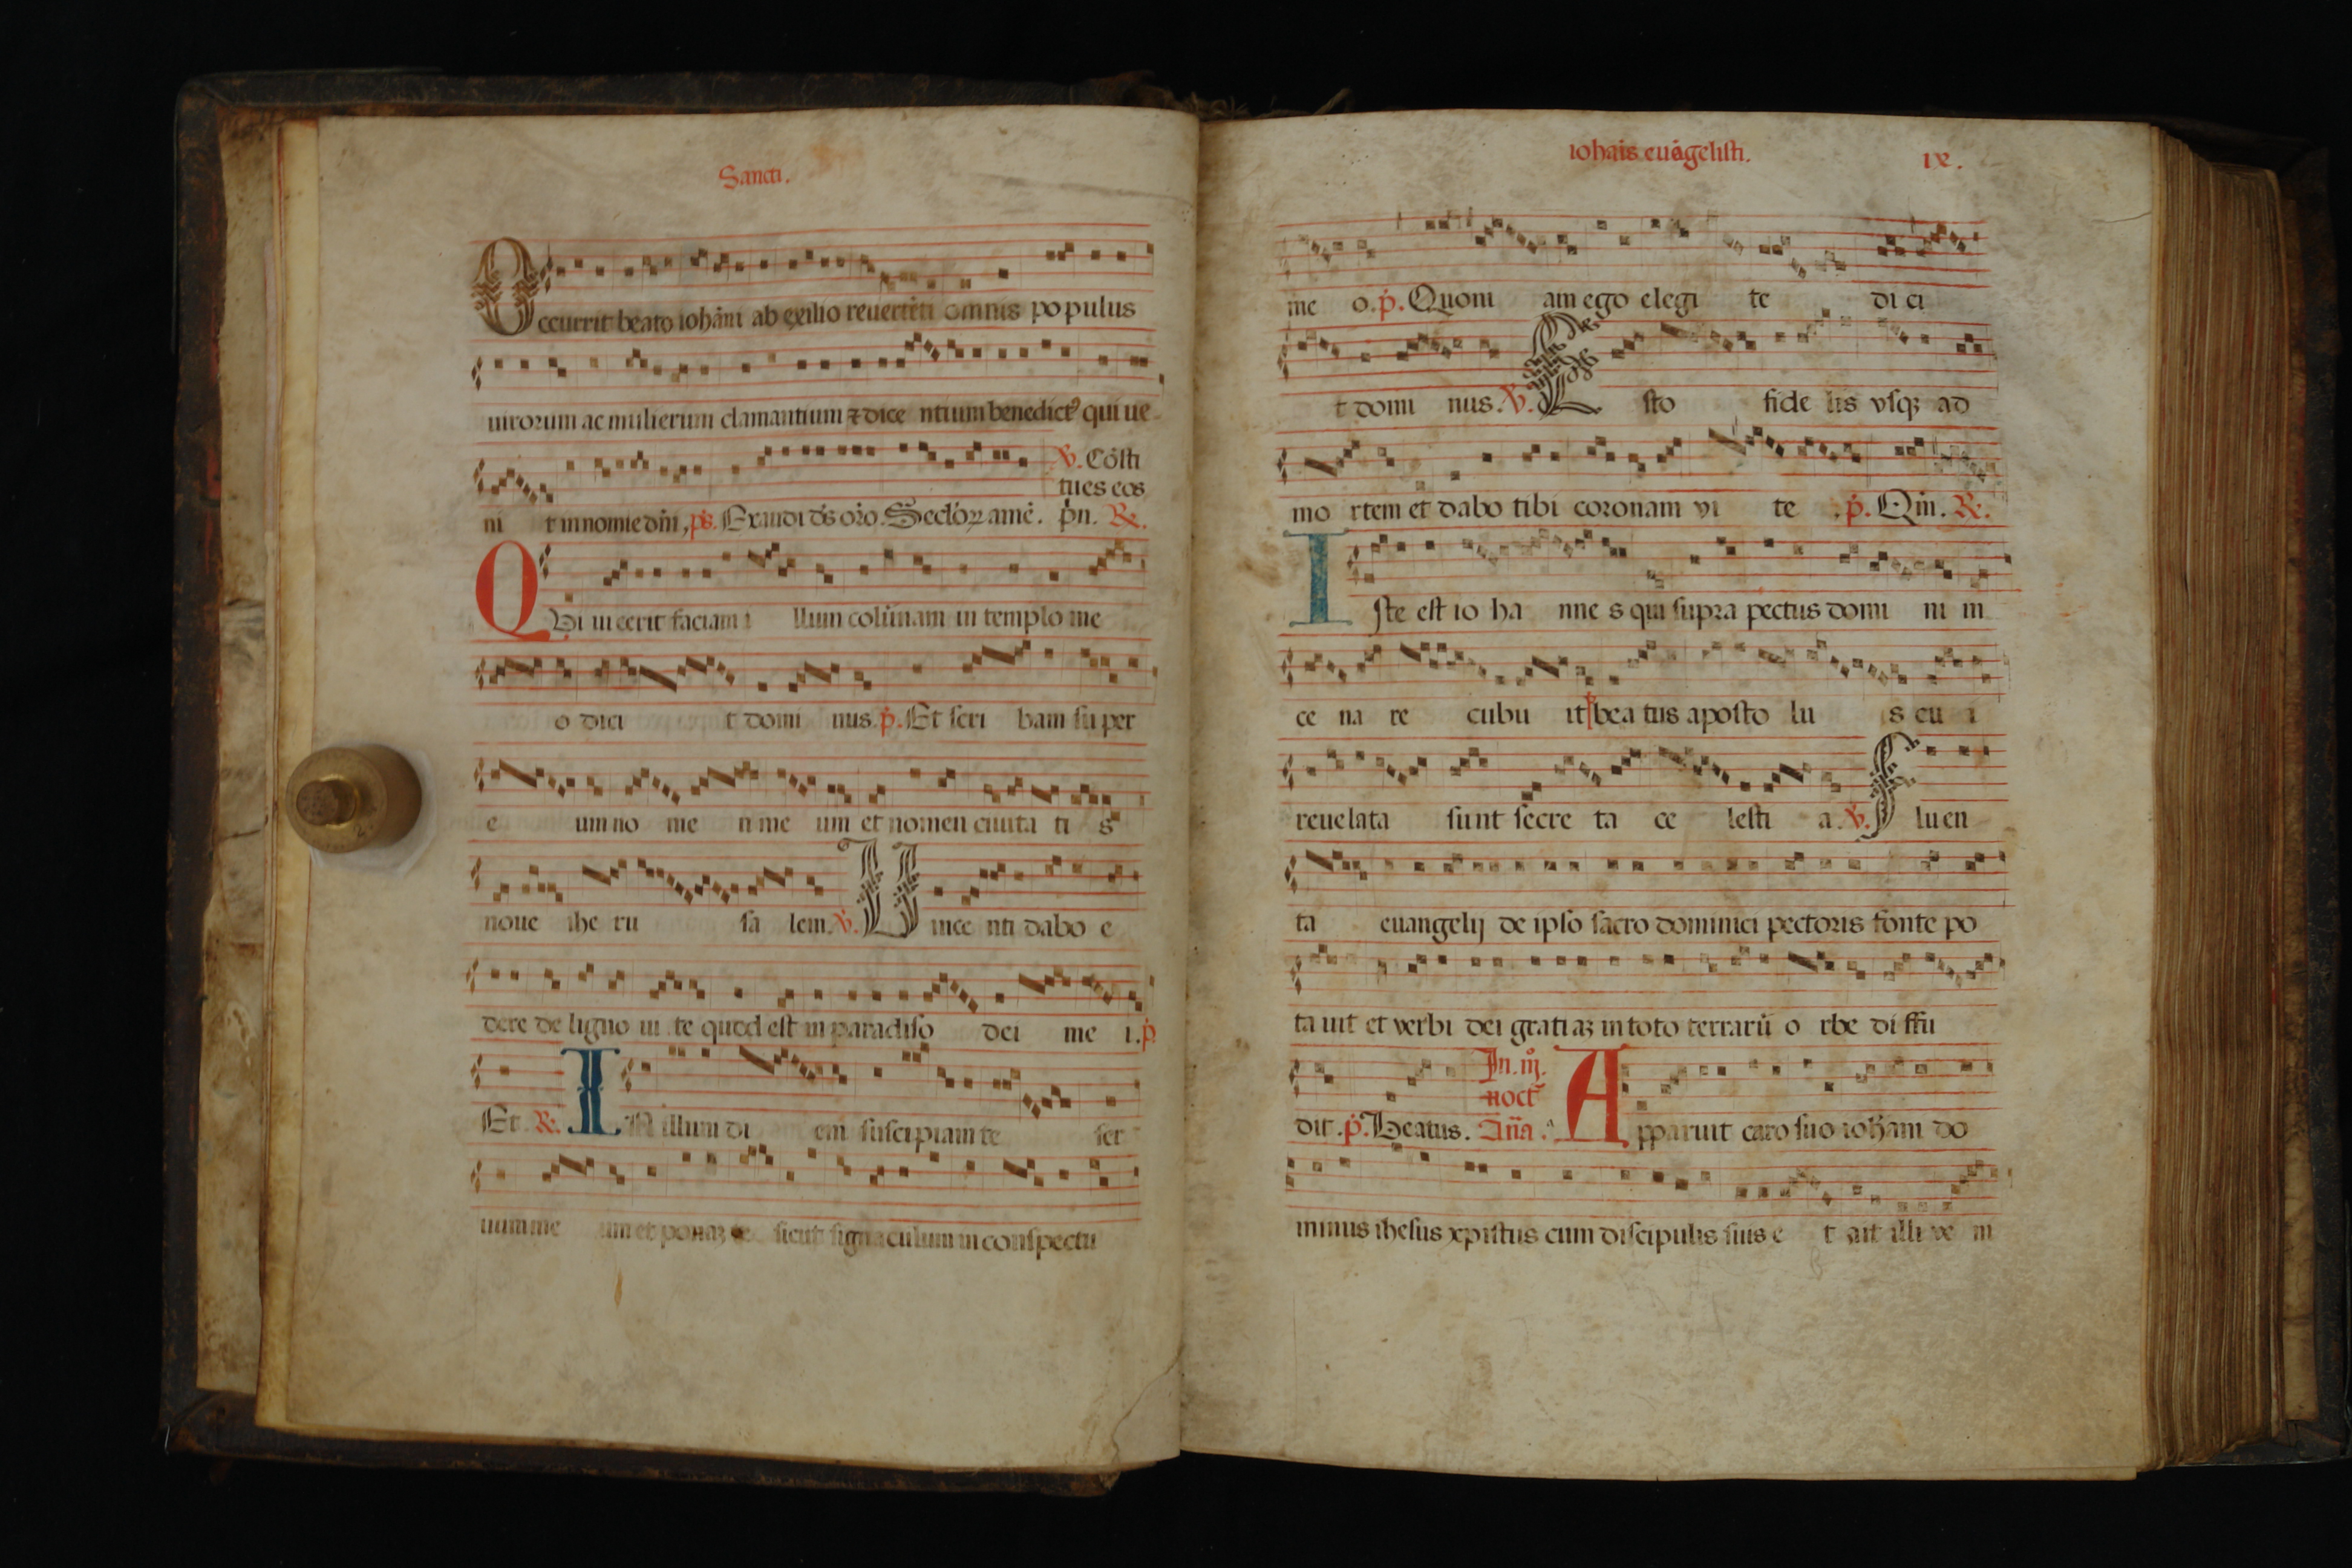 Sancti.
Occurrit beato iohãni ab exilio reuertẽti omnis populus
uirorum ac mulierum clamantium ⁊ dice ntium benedictꝰ qui ue-
℣. Cõsti
tues eos
ni t in nomine dñi, ps. Exaudi ds oro. Seclóꝝ amẽ. pn. ℟.
QVi uicerit faciam i llum colũnam in templo me
o dici t domi nus. p. Et scri bam su per
e um no me n me um et nomen ciuita ti s
noue ihe ru sa lem. ℣. Uince nti dabo e
dere de ligno ui te quod est in paradiso dei me i. p
Et. ℟. IN illum di em suscipiam te ser
uum me um et ponaʒ te sicut signaculum in conspectu
iohãis euãgelisti. ix.
me o. p. Quoni am ego elegi te di ci
t domi nus. ℣. Esto fide lis vsqʒ ad
mo rtem et dabo tibi coronam vi te . p. Qm̃. ℟.
Iste est io ha nne s qui supra pectus domi ni in
ce na re cubu it bea tus aposto lu s cu i
reuelata sunt secre ta ce lesti a. ℣. Fluen
ta euangelij de ipso sacro dominici pectoris fonte po
ta uit et verbi dei gratiaʒ in toto terrarũ o rbe diffu
In. iij.
noct̃
dit. p. Beatus. Añã. Apparuit caro suo iohani do
minus ihesus xpistus cum discipulis suis e t ait illi ve ni